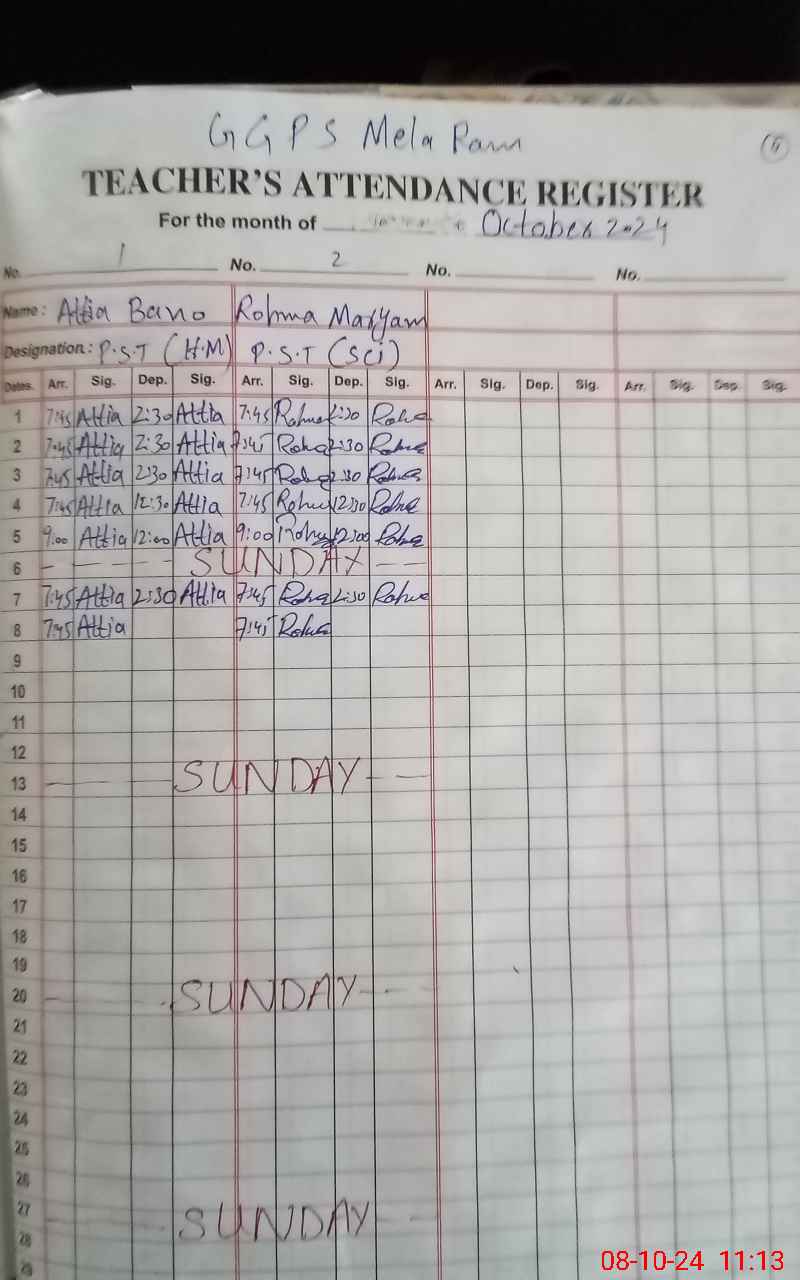 GGPS Mela Ram
TEACHER'S ATTENDANCE REGISTER
For the month of October 2024
No. 1 No. 2 No. No.
Name: Attia Bano Rohma Maryam
Designation: P.S.T (H.M) P.S.T (Sci)
Dates. Arr. Sig. Dep. Sig. Arr. Sig. Dep. Sig. Arr. Sig. Dep. Sig. Arr. Sig. Dep. Sig.
1 7:45 Attia 2:30 Attia 7:45 Rohma 2:30 Rohma
2 7:45 Attia 2:30 Attia 7:45 2:30
3 7:45 Attia 2:30 Attia 7:45 2:30
4 7:45 Attia 12:30 Attia 7:45 12:30
5 9:00 Attia 12:00 Attia 9:00 12:00
6 SUNDAY
7 7:45 Attia 2:30 Attia 7:45 2:30
8 7:45 Attia 7:45
9
10
11
12
13 SUNDAY
14
15
16
17
18
19
20 SUNDAY
21
22
23
24
25
26
27 SUNDAY
28
29
08-10-24 11:13